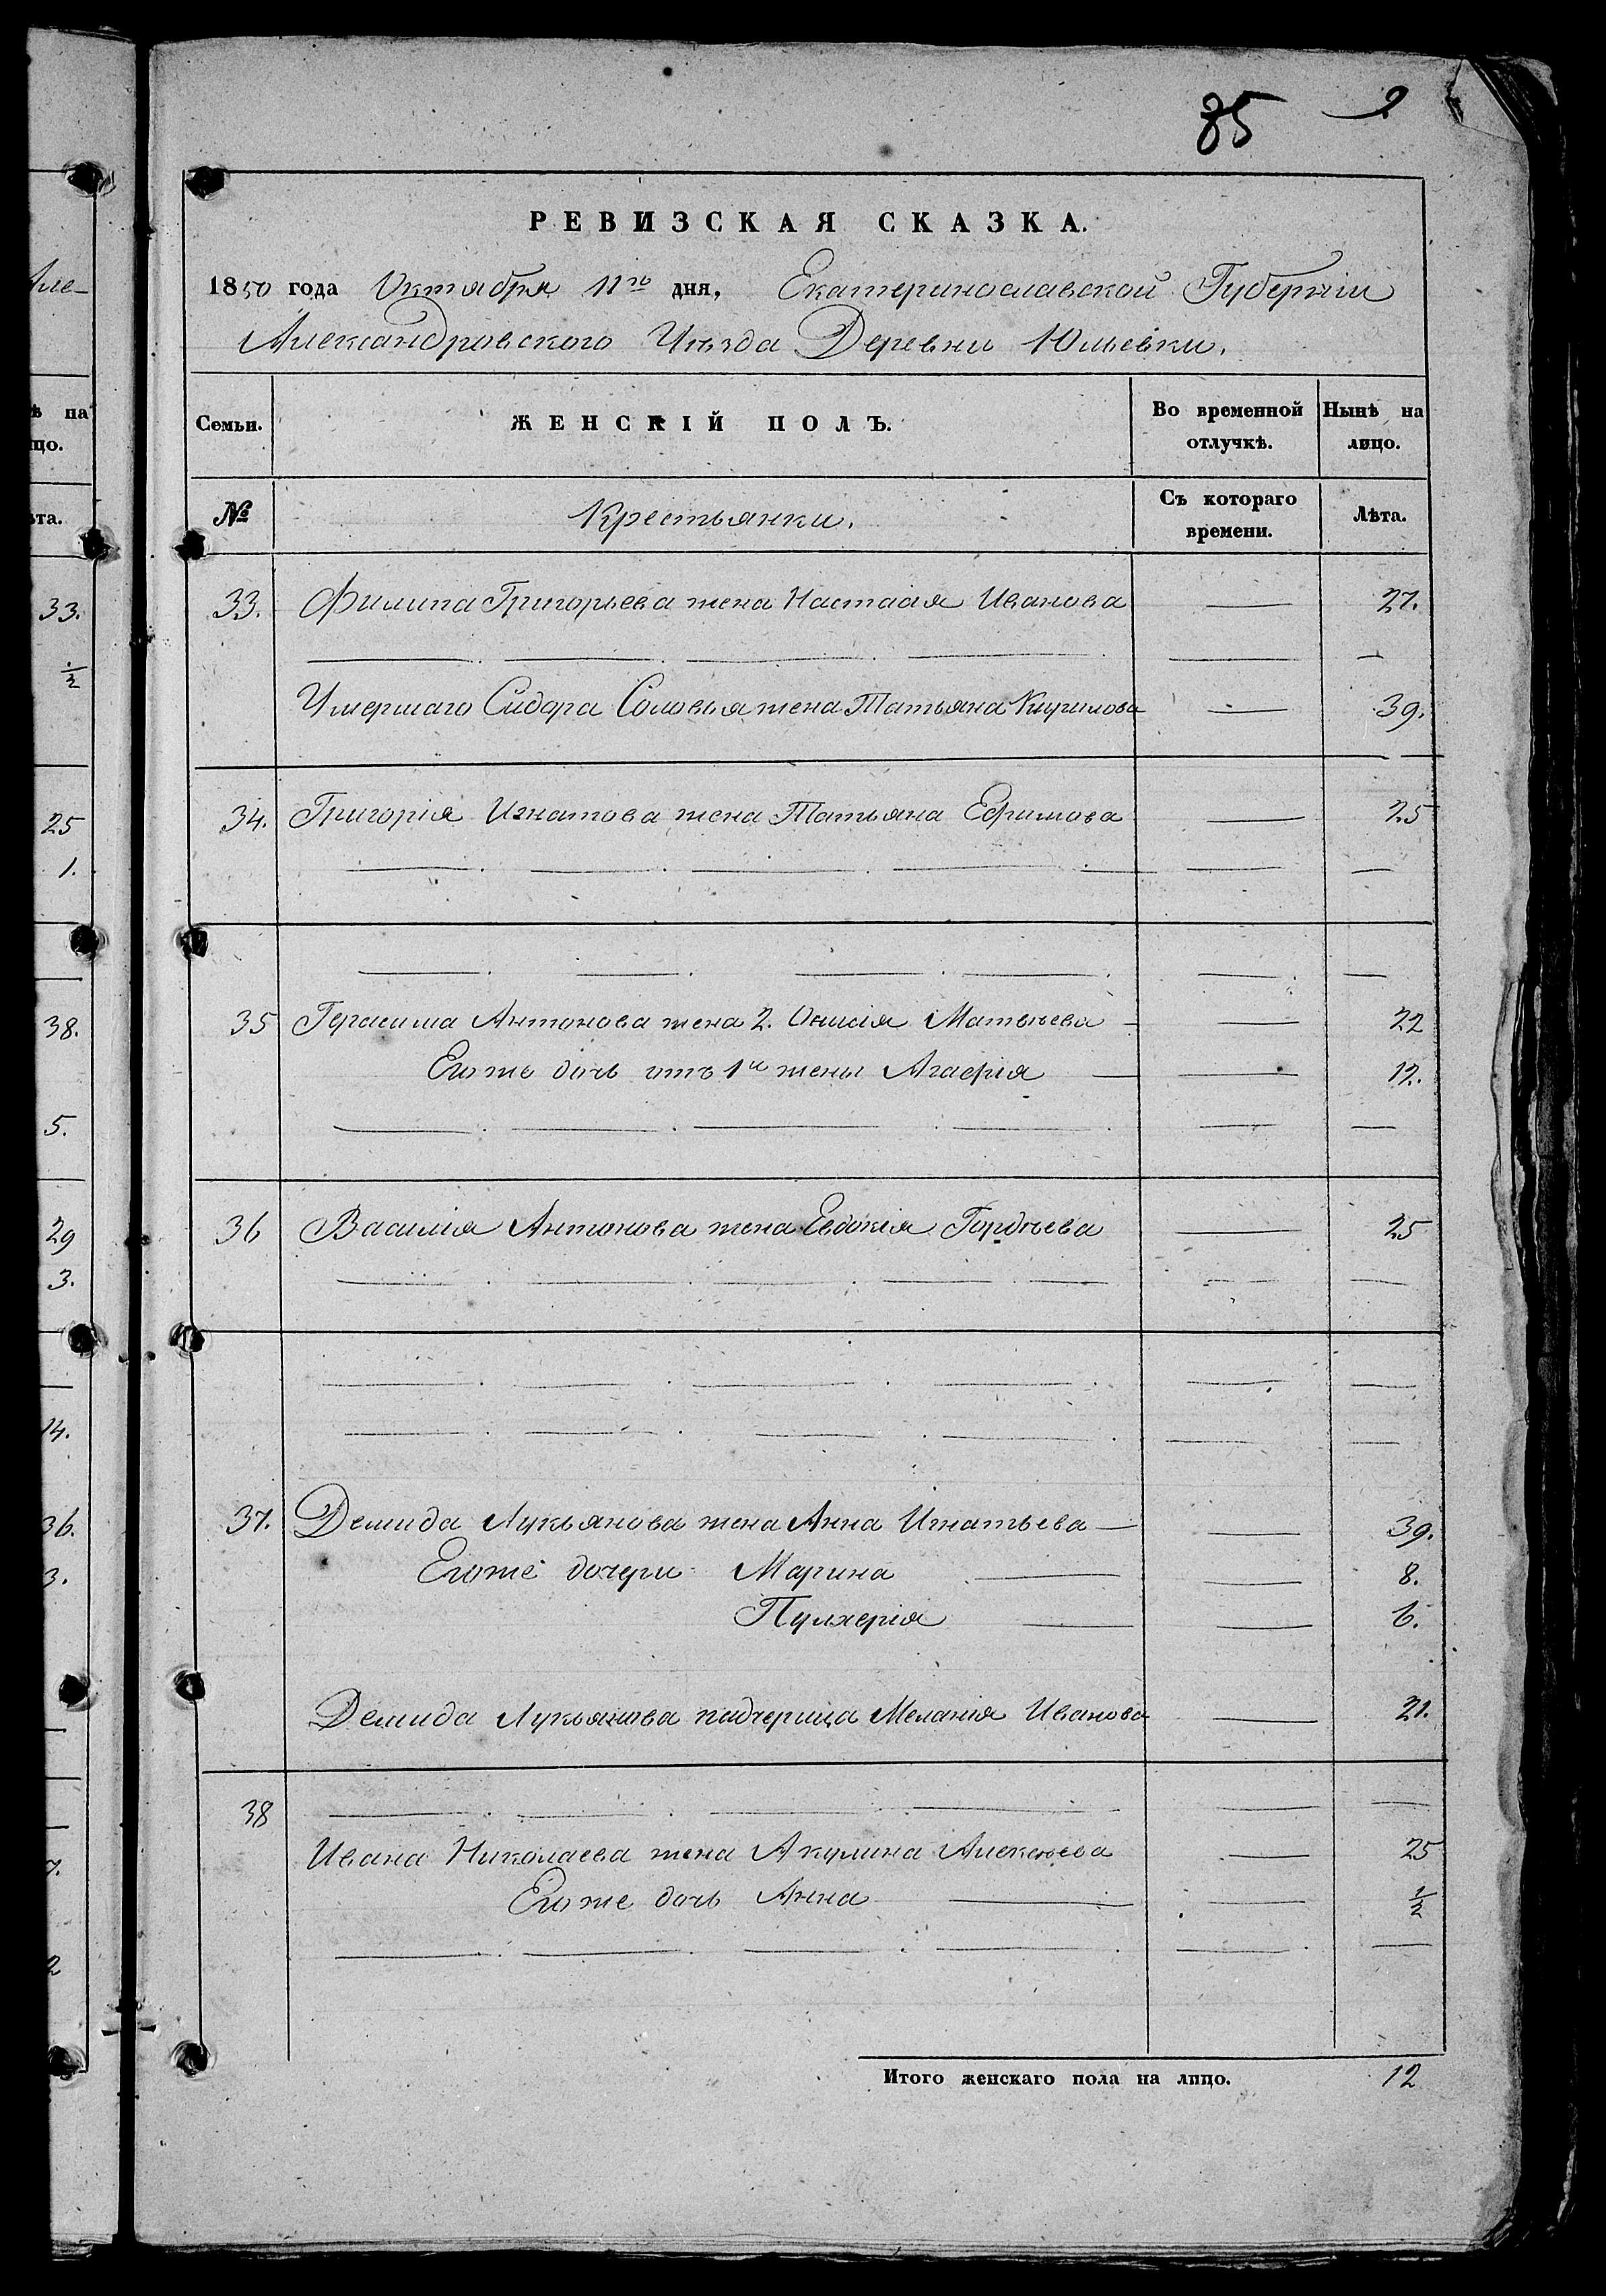 85
РЕВИЗСКАЯ СКАЗКА.
1850 года Октября 11го дня, Екатеринославской Губерніи
Александровского Уѣзда Деревни Юльевки.
Семьи. ЖЕНСКІЙ ПОЛЪ. Во временной отлучкѣ. Нынѣ на лицо.
№ Крестьянки. Съ котораго времени. Лѣта.
33. Филипа Григорьева жена Настасія Иванова — 27.
Умершаго Сидора Соловья жена Татьяна Кирилова — 39.
34. Григорія Игнатова жена Татьяна Ефимова — 25
35 Герасима Антонова жена 2. Онисія Матвѣева — 22
Его же дочь отъ 1й жены Агафія — 12.
36 Василія Антонова жена Евдокія Гордѣева — 25
37. Демида Лукьянова жена Анна Игнатьева — 39.
Его же дочери Марина — 8.
Пулхерія — 6.
Демида Лукьянова падчерица Меланія Иванова — 21.
38
Ивана Николаева жена Акулина Алексѣева — 25
Его же дочь Анна — 1/2
Итого женскаго пола на лицо. 12
Але-
ѣ на
цо.
ѣта.
33.
1/2
25
1.
38.
5.
29
3.
14.
36.
3.
7.
2